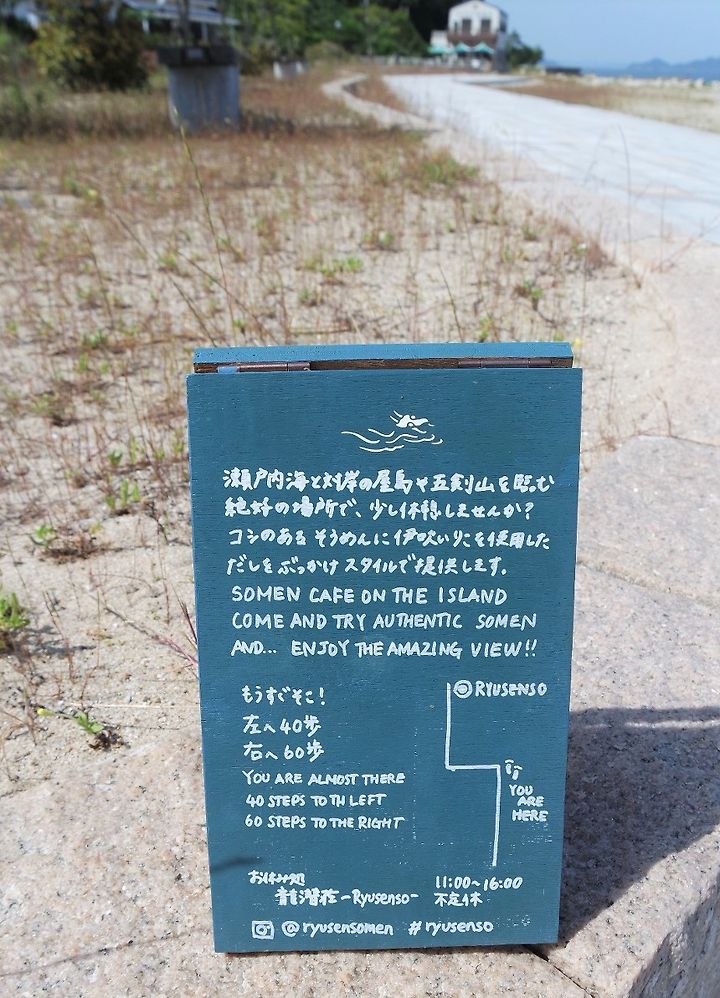 瀬戸内海と対岸の屋島や五剣山を臨む
絶好の場所で、少し休憩しませんか?
コシのある そうめんに伊吹いりこを使用した
だしをぶっかけスタイルで提供します。
SOMEN CAFE ON THE ISLAND
COME AND TRY AUTHENTIC SOMEN
AND... ENJOY THE AMAZING VIEW!!
もうすぐそこ!
左へ40歩
右へ60歩
YOU ARE ALMOST THERE
40 STEPS TO TH LEFT
60 STEPS TO THE RIGHT
RYUSENSO
YOU
ARE
HERE
お休み処
龍潜荘 -Ryusenso-
11:00~16:00
不定休
@ryusensomen #ryusenso